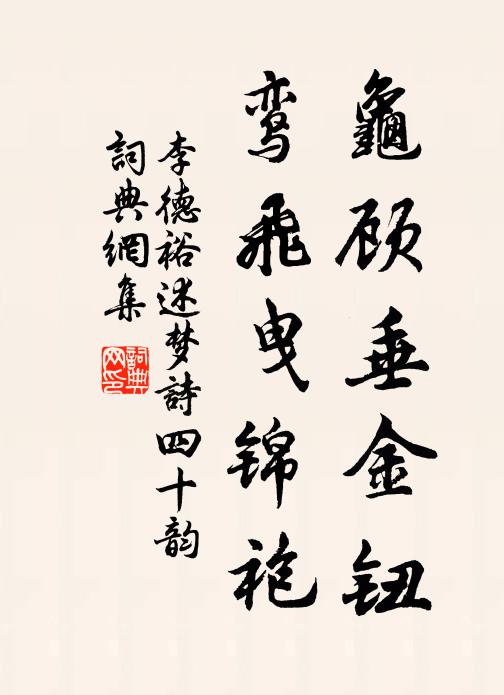 龜顾垂金钮
鸾飛曳锦袍
李德裕述梦詩四十韵
詞典網集
詞典网印